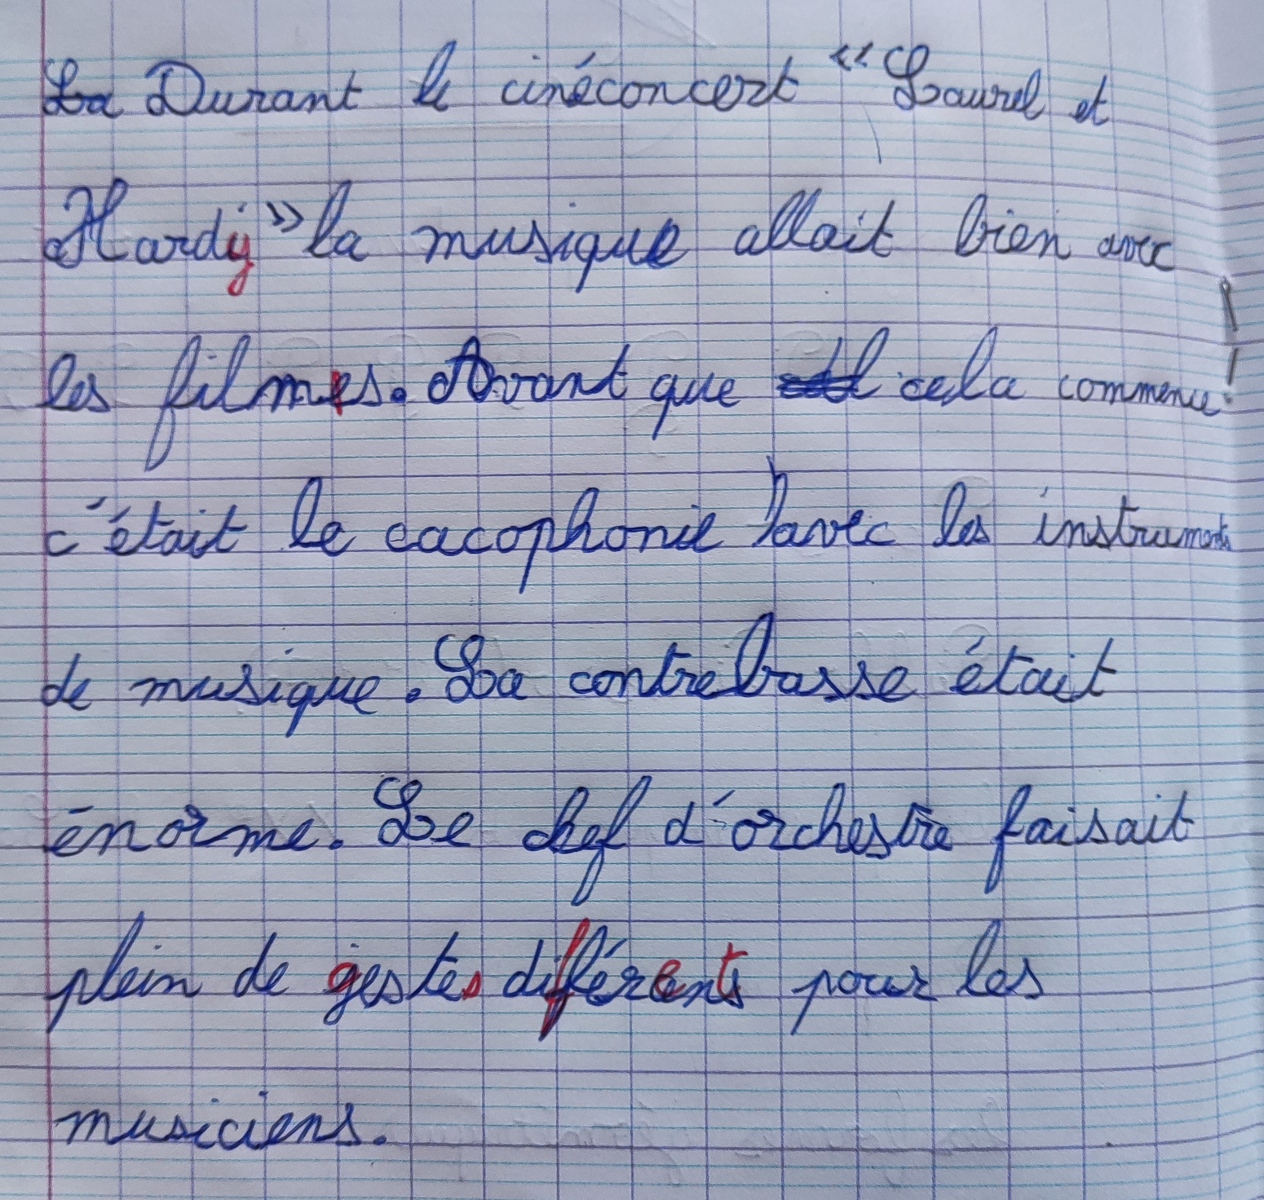 La Durant le cinéconcert "Laurel et
Hardy" la musique allait bien avec
les films. Avant que cela commence
c'était le cacophonie avec les instruments
de musique. La contrebasse était
énorme. Le chef d'orchestre faisait
plein de gestes différents pour les
musiciens.